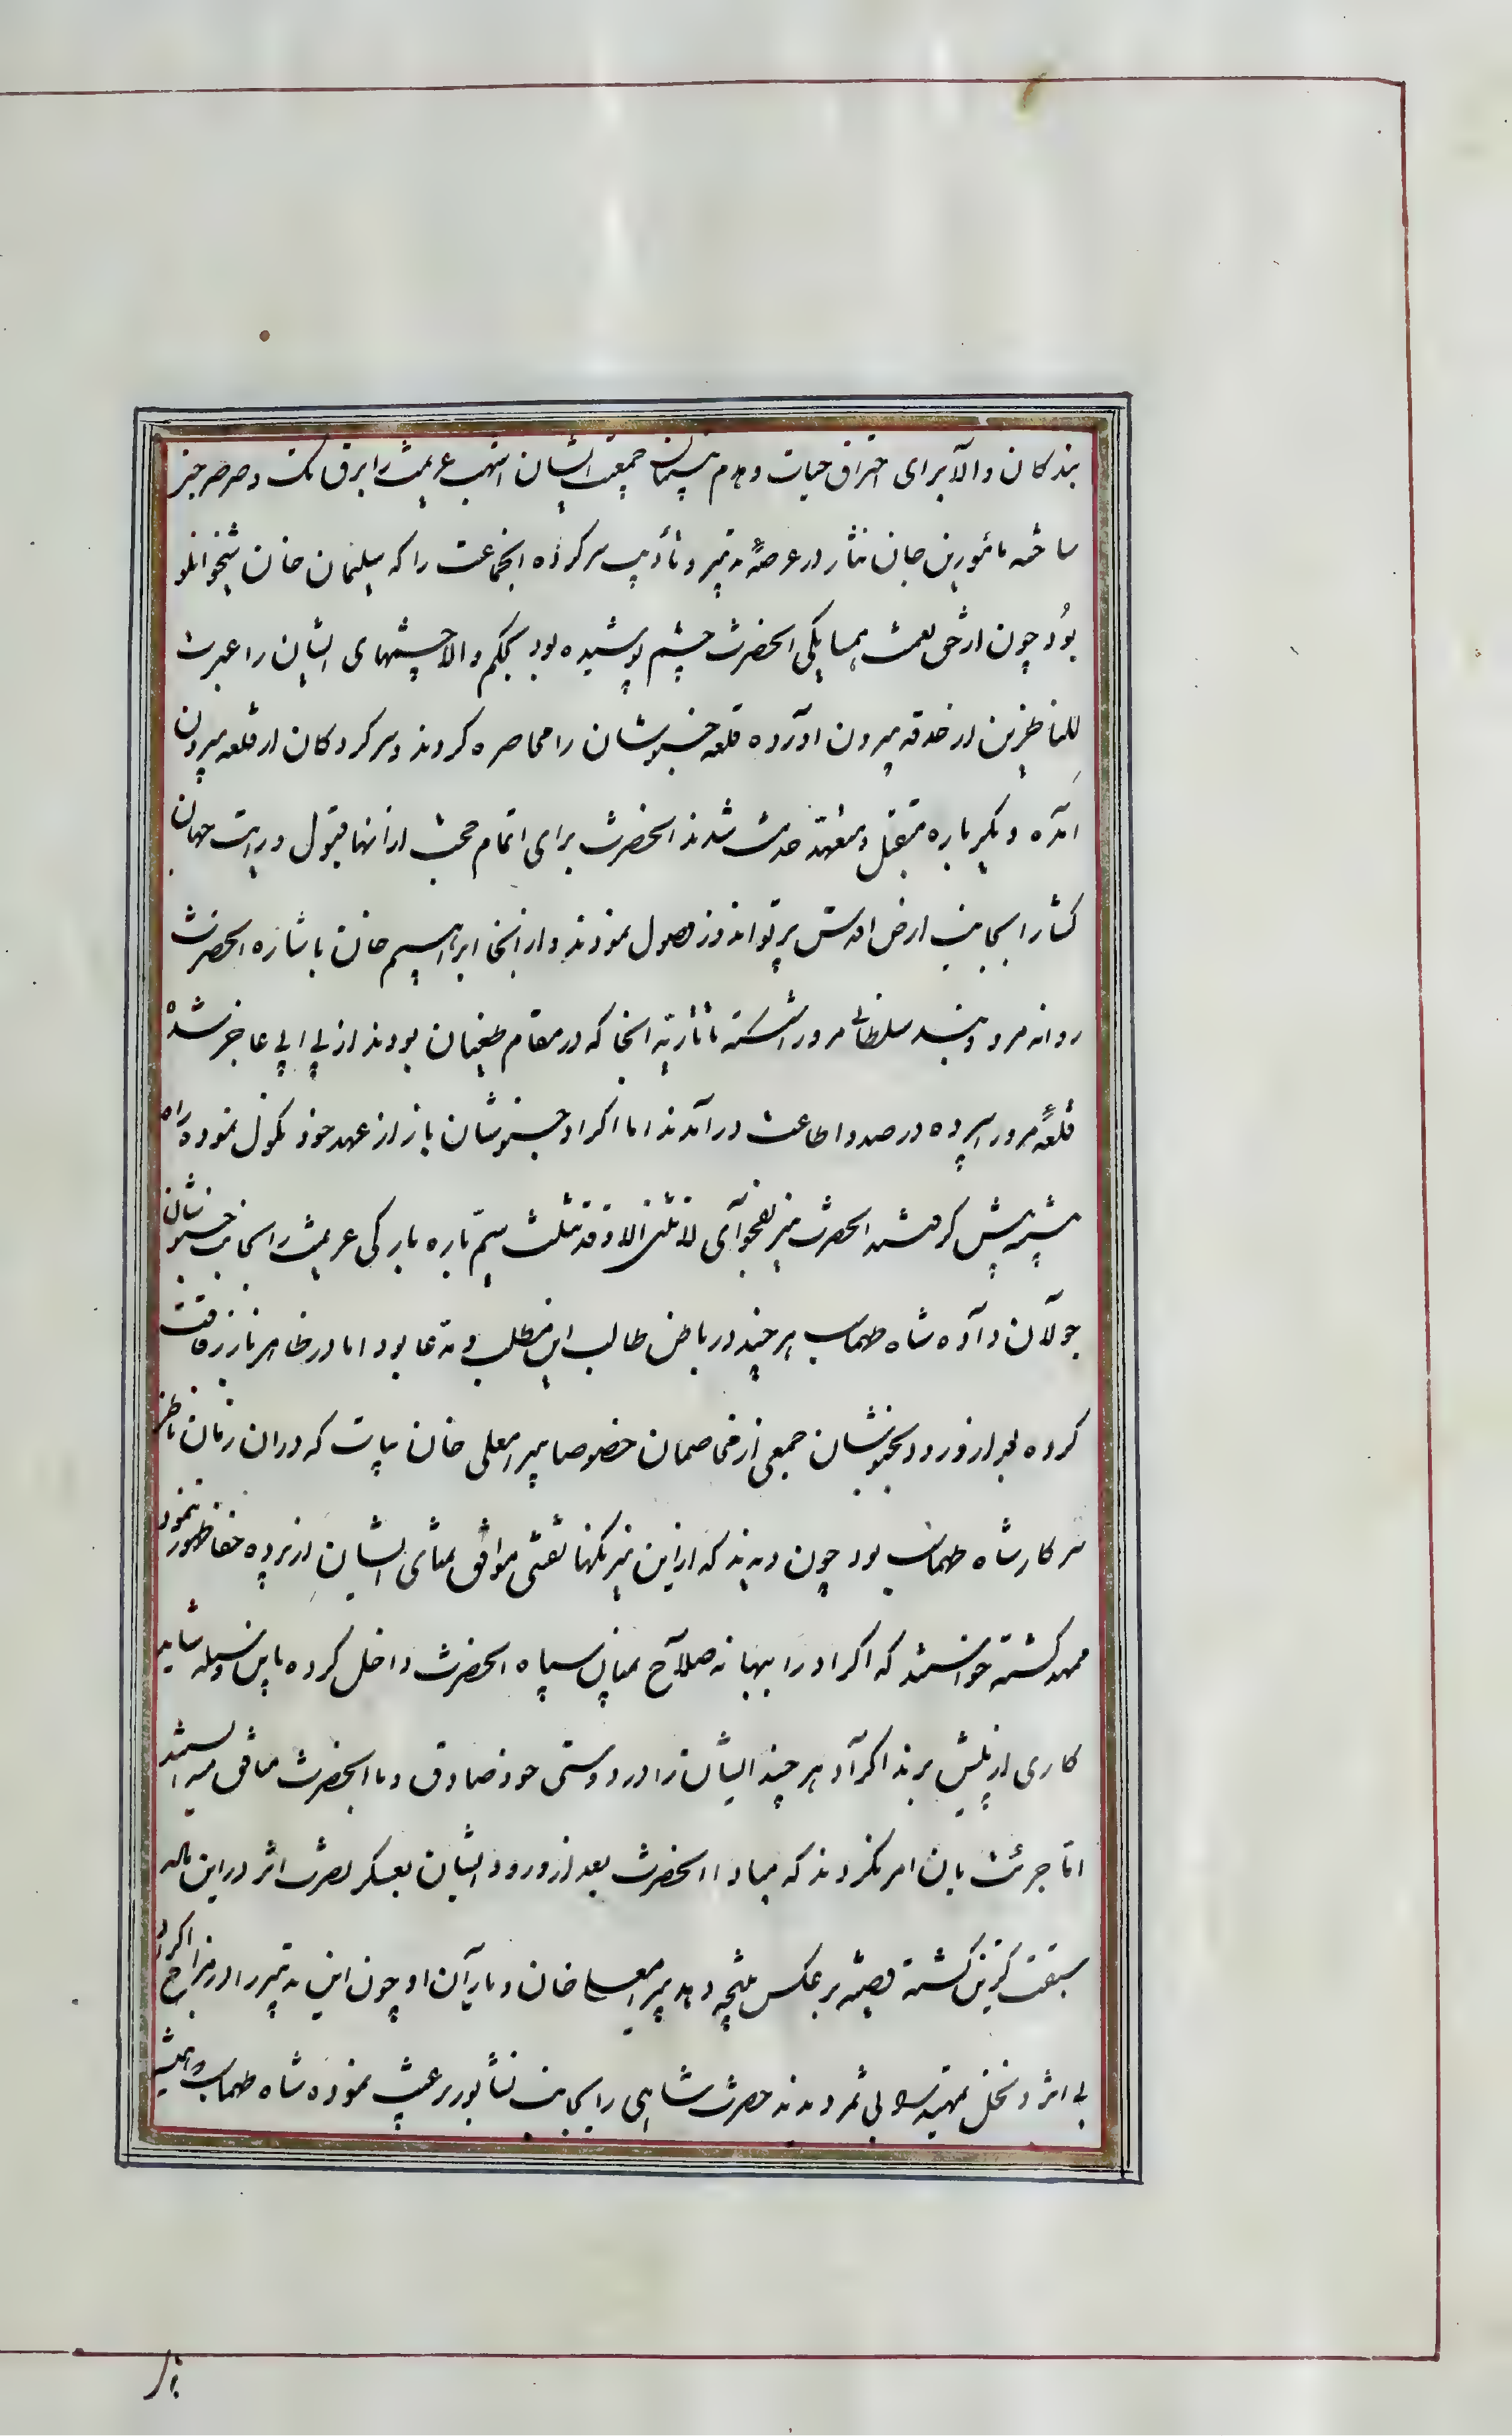 بندکان والا برای احتراق حیات و هدم بنیان جمعیت ایشان اشهب عزیمت را برق تک و صرصر خیز
ساخته مأمورین جان نثار در عرصهٔ تدمیر و تأدیب سرکرده انجماعت را که سلیمان خان شیخوانلو
بود چون از حق نعمت همسایکی انحضرت چشم پوشیده بود بحکم والا چشمهای ایشان را عبرت
للناظرین از حدقه بیرون اورده قلعه خبوشان را محاصره کردند و سرکردکان از قلعه بیرون
امده و یکبر باره متقبل و متعهد خدمت شدند انحضرت برای اتمام حجت از انها قبول و رایت جهان
کشا را بجانب ارض اقدس پرتو انداز وصول نمودند و از انجا ابراهیم خان باشاره انحضرت
روانه مرو و بند سلطانی مرو را شکسته تاتاریه انجا که در مقام طغیان بودند از بی ابی عاجز شده
قلعهٔ مرو را سپرده در صدد اطاعت درآمدند اما اکراد خبوشان باز از عهد خود نکول نموده راه
ستیزه پیش کرفتند انحضرت نیز بفحوای لا تثنی الا و قد تثلث سیم باره بارکی عزیمت را بجانب خبوشان
جولان داده شاه طهماسب هر چند در باطن طالب این مطلب و مدعا بود اما در ظاهر نیز رفاقت
کرده بعد از ورود بخبوشان جمعی از مخاصمان خصوصا پیر معلی خان بیات که دران زمان ناظر
سرکار شاه طهماسب بود چون دیدند که از این نیرنکها نقشی موافق تمنای ایشان از پرده خفا ظهور ننمود
ممهد کشته خواستند که اکراد را ببهانه صلاح بمیان سپاه انحضرت داخل کرده باین وسیله شاید
کاری از پیش برند اکراد هر چند ایشان را در دوستی خود صادق و با انحضرت منافق میدانستند
اما جرئت بان امر نکردند که مبادا انحضرت بعد از ورود ایشان بعسکر نصرت اثر در این ماده
سبقت کزین کشته قضیه بر عکس نتیجه دهد پیر معلی خان و یاران او چون این تدبیر را در مزاج اکراد
بی اثر و نخل تمهید را بی ثمر دیدند حضرت شاهی را بجانب نشابور رغبت نموده شاه طهماسب